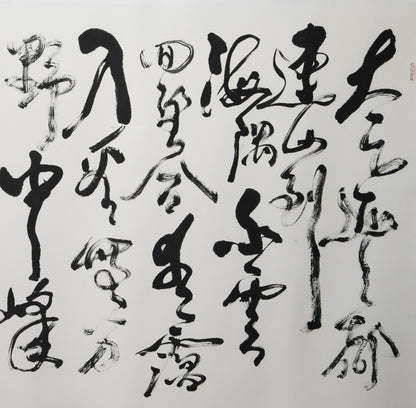 太乙近天都
連山到
海隅白雲
回望合青靄
入看無分
野中峰